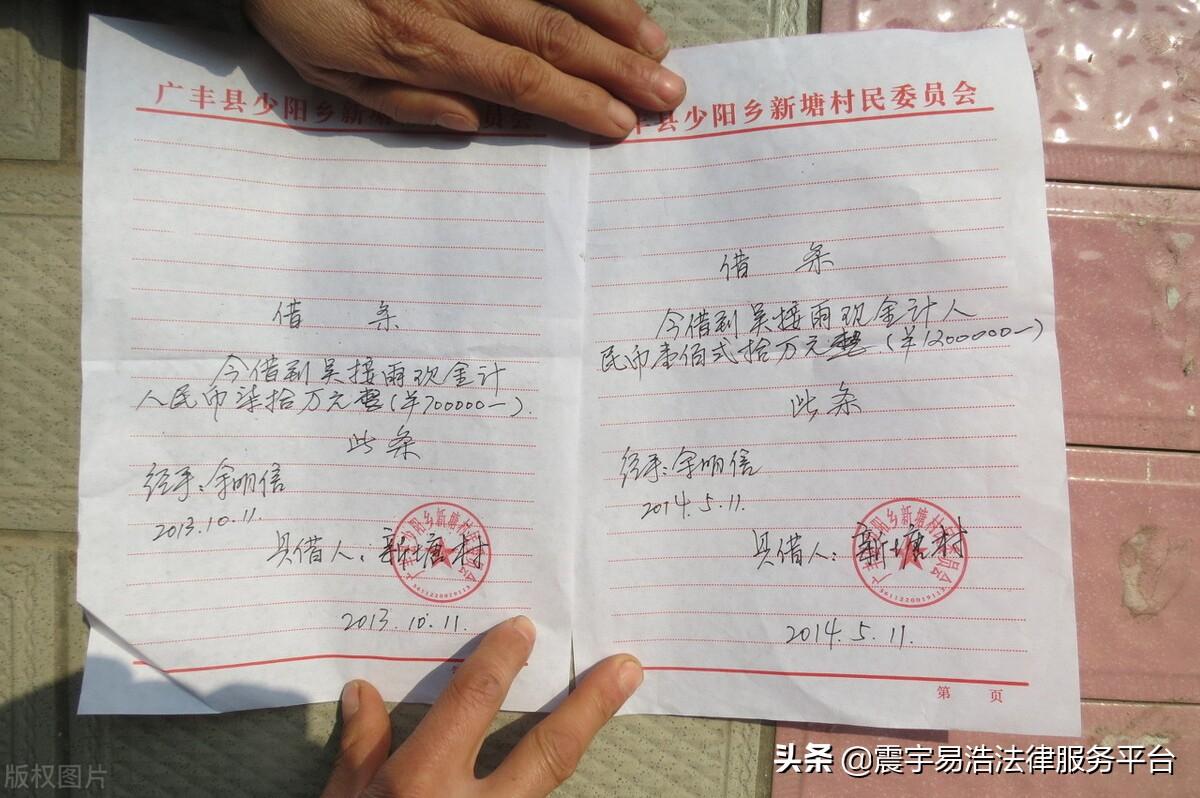 广丰县少阳乡新塘村民委员会
借 条
今借到吴接雨现金计
人民币柒拾万元整(¥700000-).
此条
经手:余明信
2013.10.11.
具借人:新塘村
2013.10.11.
丰县少阳乡新塘村民委员会
借 条
今借到吴接雨现金计人
民币壹佰弍拾万元整.(¥1200000-)
此条
经手:余明信
2014.5.11.
具借人:新塘村
2014.5.11.
第 页
版权图片
头条 @震宇易浩法律服务平台